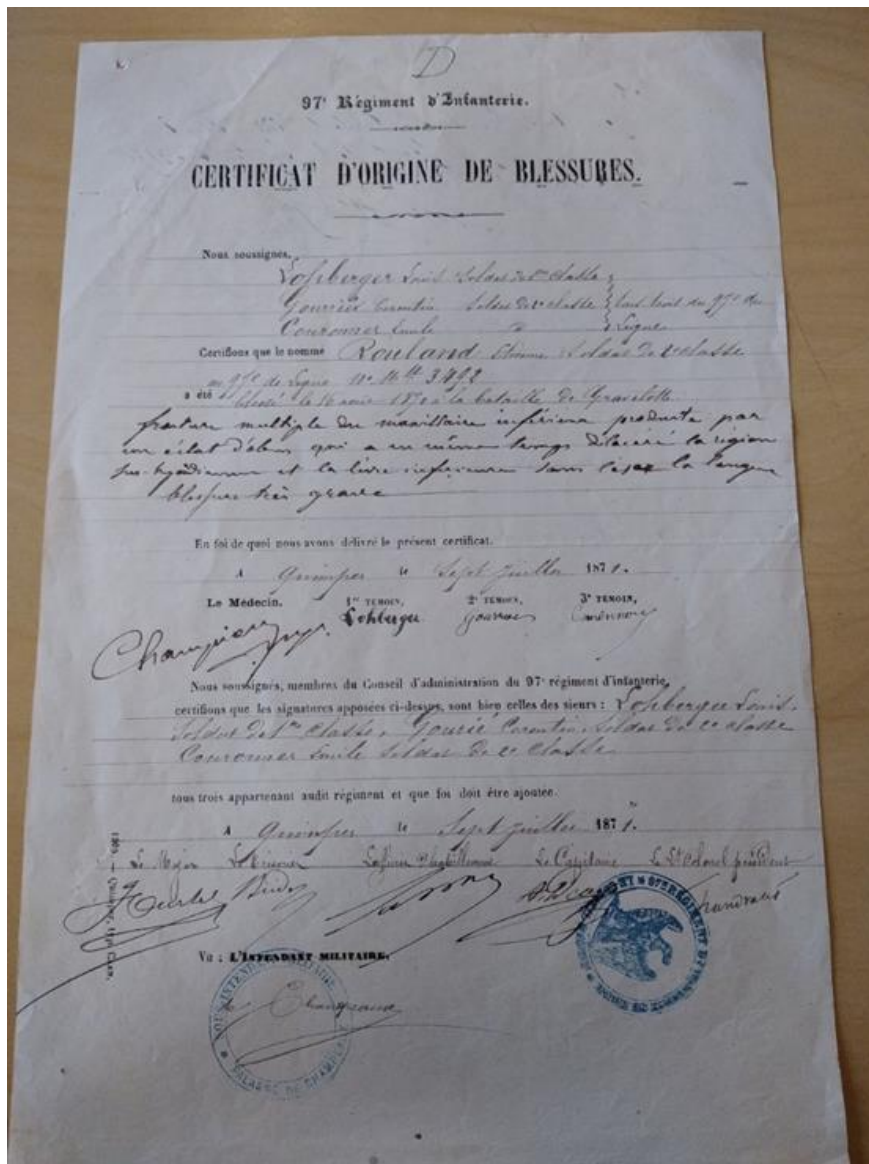 D
97e Régiment d'Infanterie.
CERTIFICAT D'ORIGINE DE BLESSURES.
Nous soussignés,
Lohberger Louis Soldat de 1re classe
Gourriès Corentin Soldat de 2e classe tous trois du 97e de
Couronner Emile do Ligne
Certifions que le nommé Rouland Etienne Soldat de 2e classe
au 97e de Ligne No Mle 3492
a été blessé le 16 août 1870 à la bataille de Gravelotte
fracture multiple du maxillaire inférieur produite par
un éclat d'obus qui a en même temps dilacéré la région
sus-hyoïdienne et la lèvre inférieure sans léser la langue
blessure très grave
En foi de quoi nous avons délivré le présent certificat.
A Quimper le Sept Juillet 1871.
Le Médecin. 1er TEMOIN, 2e TEMOIN, 3e TEMOIN,
Lohberger
Nous soussignés, membres du Conseil d'administration du 97e régiment d'infanterie,
certifions que les signatures apposées ci-dessus, sont bien celles des sieurs : Lohberger Louis.
Soldat de 1re classe, Gourié Corentin Soldat de 2e classe
Couronner Emile Soldat de 2e Classe
tous trois appartenant audit régiment et que foi doit être ajoutée.
A Quimper le Sept Juillet 1871.
Le Major Le Trésorier L'officier d'habillement Le Capitaine Le Lt Colonel président
Vu : L'INTENDANT MILITAIRE,
SOUS-INTENDANT MILITAIRE
97e RÉGIMENT D'INFANTERIE